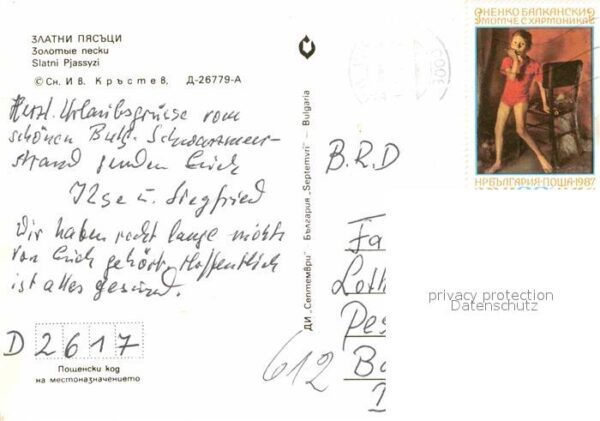 ЗЛАТНИ ПЯСЪЦИ
Золотые пески
Slatni Pjassyzi
© Сн. И в. К р ъ с т е в, Д-26779-А
Herzl. Urlaubsgrüsse vom
schönen Bulg. Schwarzmeer-
strand senden Euch
Ilse u. Siegfried
Wir haben recht lange nichts
von Euch gehört. Hoffentlich
ist alles gesund.
D 2617
Пощенски код
на местоназначението
ДИ „Септември" България „Septemvri" – Bulgaria
НЕНКО БАЛКАНСКИ
МОМЧЕ С ХАРМОНИКА
НР БЪЛГАРИЯ·ПОЩА·1987
B.R.D
Fa
Loth
Pes
612
privacy protection
Datenschutz